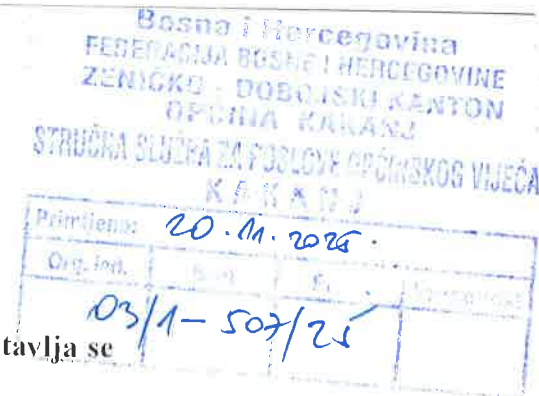 Bosna i Hercegovina
FEDERACIJA BOSNE I HERCEGOVINE
ZENIČKO - DOBOJSKI KANTON
OPĆINA KAKANJ
STRUČNA SLUŽBA ZA POSLOVE OPĆINSKOG VIJEĆA
KAKANJ
Primljeno: 20.11.2025.
Org. jed.
03/1-507/25
tavlja se